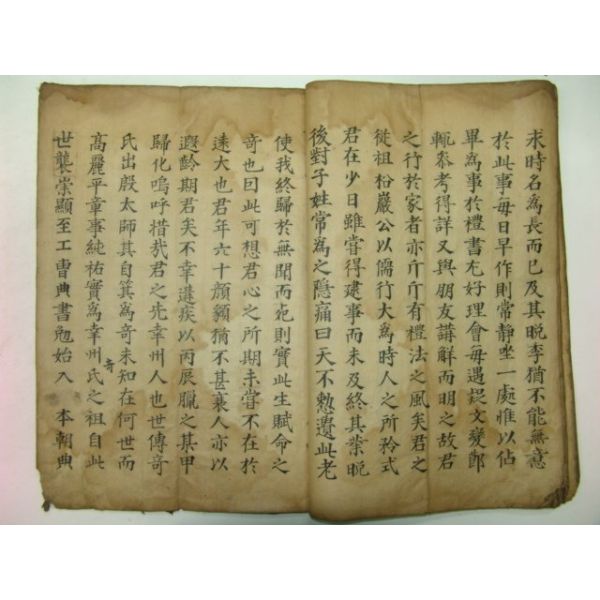 求時名為長而已及其晩季猶不能無意
於此事每日早作則常静坐一處惟以佔
畢為事於禮書尤好理會每遇疑文變節
輒叅考得詳又與朋友講解而明之故君
之行於家者亦斤斤有禮法之風矣君之
從祖松巖公以儒行大為時人之所矜式
君在少日雖嘗得建事而未及終其業晩
後對子姓常為之隠痛曰天不憗遺此老
使我終歸於無聞而死則實此生賦命之
竒也因此可想君心之所期未嘗不在於
遠大也君年六十顔䫉猶不甚衰人亦以
遐齡期君矣不幸遘疾以丙辰臘之某甲
歸化嗚呼惜㦲君之先幸州人也世傳竒
氏出殷太師其自箕為竒未知在何世而
高麗平章事純祐實為幸州氏之祖自此
奇
世襲崇顯至工曺典書勉始入 本朝典